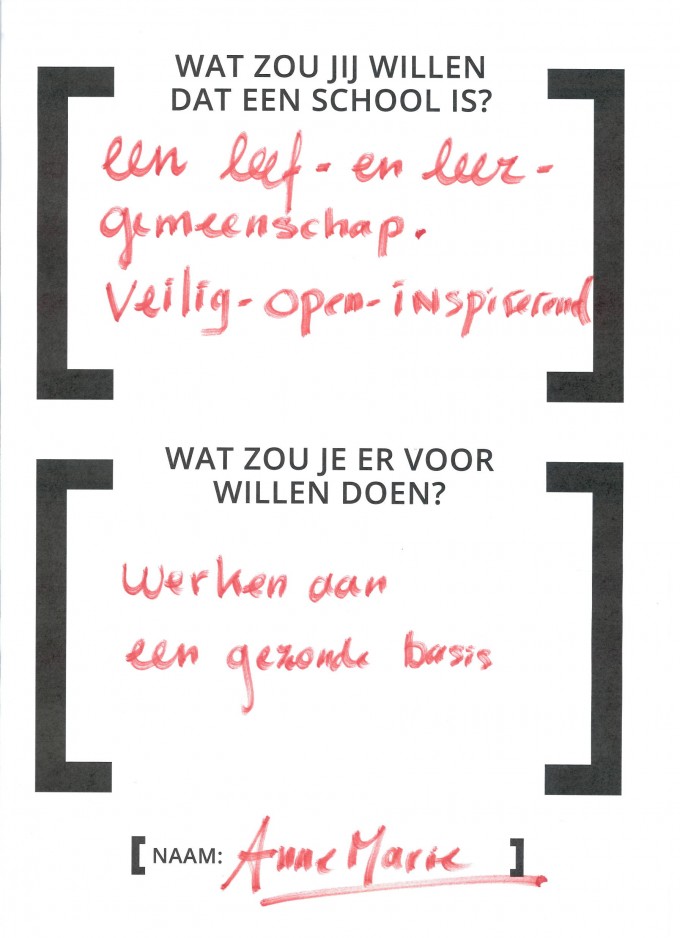 WAT ZOU JIJ WILLEN
DAT EEN SCHOOL IS?
een leef- en leer-
gemeenschap.
Veilig-open-inspirerend
WAT ZOU JE ER VOOR
WILLEN DOEN?
werken aan
een gezonde basis
[NAAM: Anne Marie ]